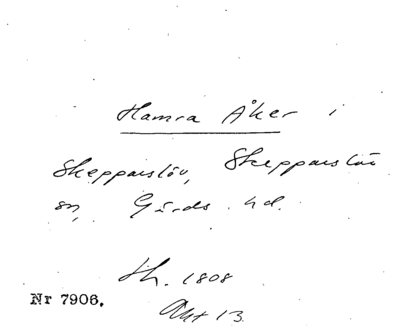 Hamra Åker i
Skepparslöv, Skepparslöv
sn, Gärds hd.
Sk. 1808
Akt 13.
Nr 7906.